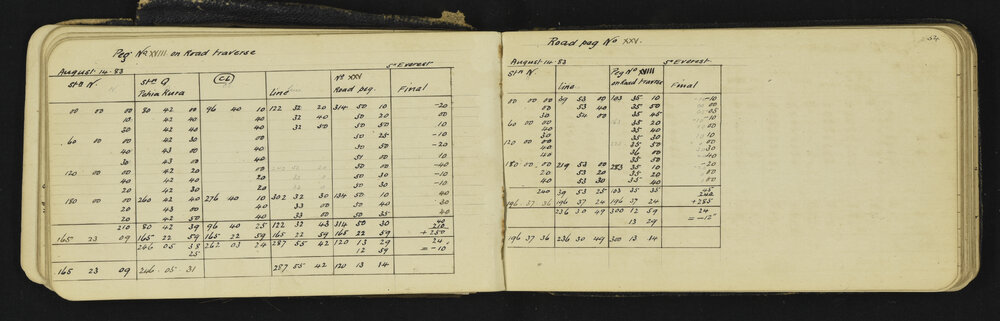 Peg No XVIII on Road traverse
5in Everest
August 14. 83
Stn N. Stn Q (C6) No XXV
Pehia Kura Line Road peg. Final
00 00 00 80 42 00 96 40 10 122 32 20 314 50 10 -20
10 42 40 40 32 40 50 20 00
20 42 40 40 32 50 50 50 10
60 00 00 42 30 00 50 25 -10
40 43 00 40 50 50 -20
30 43 00 00 51 00 -10
120 00 00 42 20 00 50 00 -40
40 42 20 40 50 30 -10
20 42 30 20 50 30 -10
180 00 00 260 42 40 276 40 10 302 32 30 134 50 10 40
20 43 00 33 00 50 40 30
20 42 50 33 00 50 35 40
210 80 42 39 96 40 25 122 32 43 314 50 30 40
210
165 23 09 165 22 59 165 22 59 165 22 59 165 22 59 +250
246 05 38 262 03 24 287 55 42 120 13 29 24
25 12 59 = -10"
165 23 09 246. 05 31 287 55 42 120 13 14
Road peg No XXV.
54
August 14. 83 5in Everest
Stn N. Peg No XVIII
Line on Road traverse Final
00 00 00 39 53 00 103 35 10 -10
00 53 40 35 50 00
30 54 00 35 45 05
60 00 00 35 20 -10
40 35 50 00
30 35 30
120 00 00 35 50
40 36 00
40 35 50 -40
180 00 00 219 53 00 283 35 10 -20
20 53 20 35 20 00
40 53 30 35 40 00
240 39 53 25 103 35 35 45
240
196. 37. 36 196 37 24 196 37 24 +285
236 30 49 300 12 59 24
13 29 = -12"
196 37 36 236 30 49 300 13 14